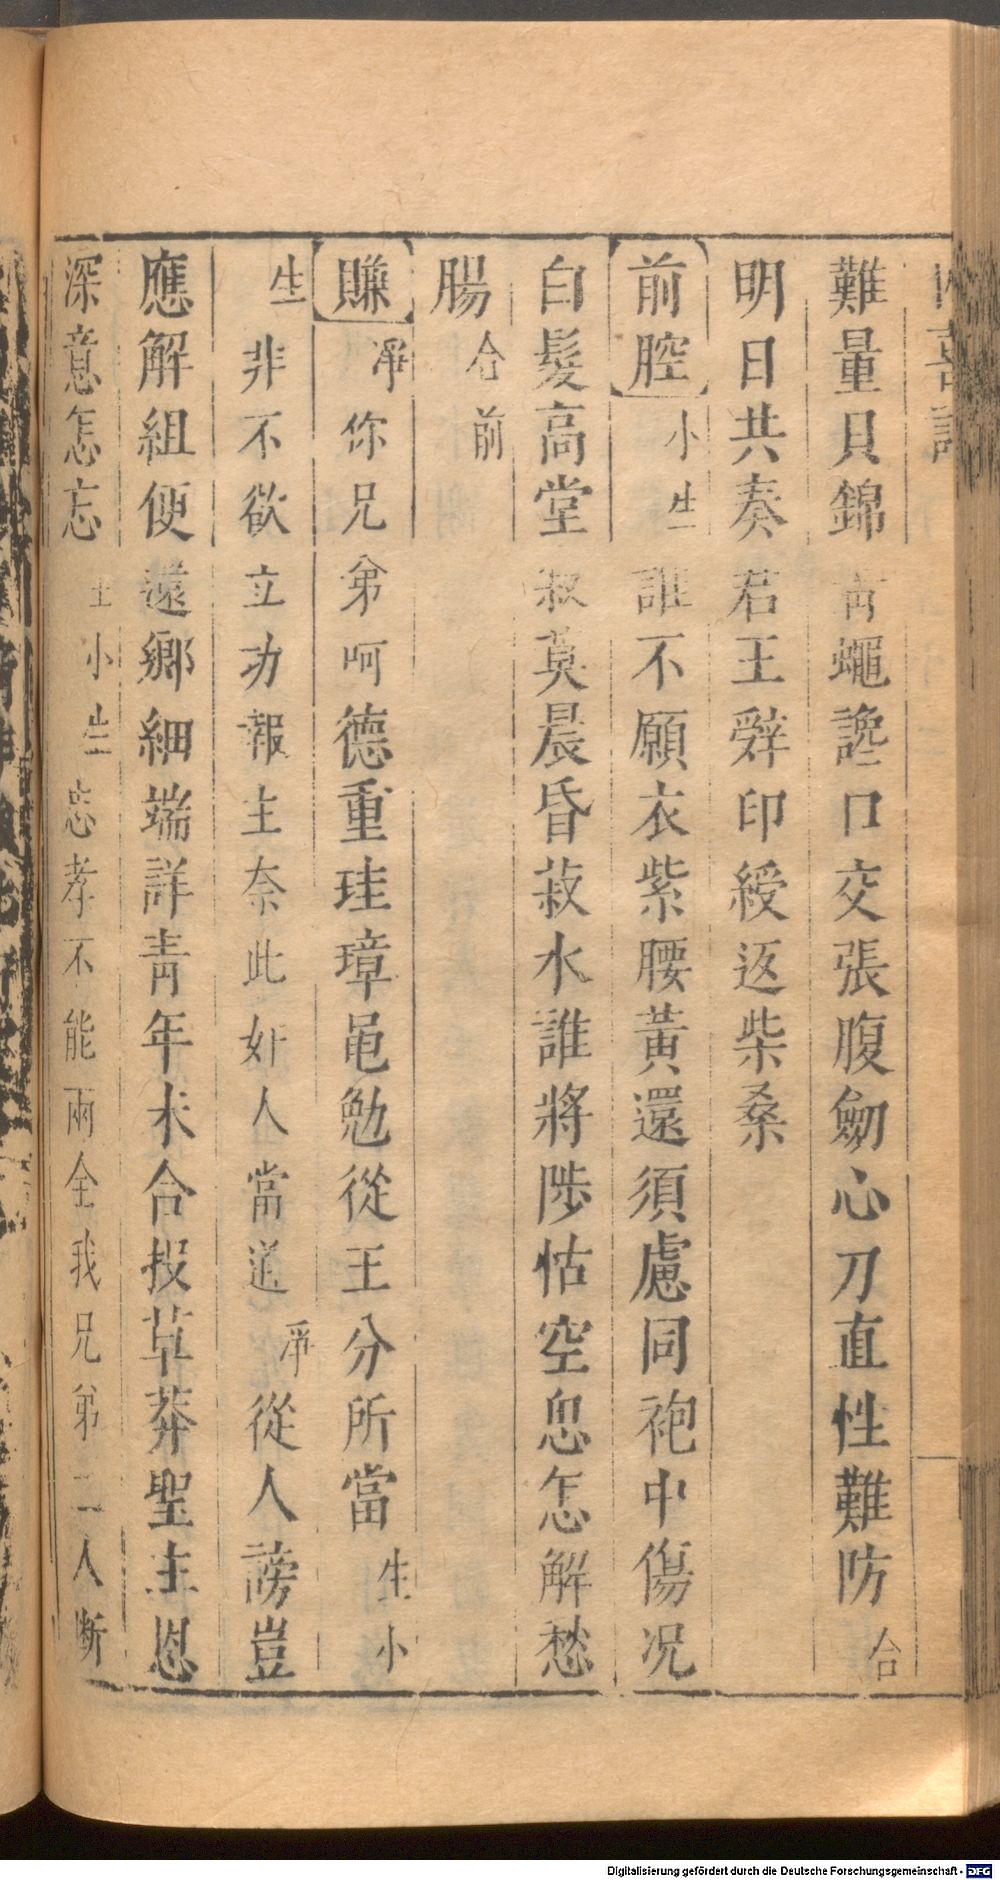 喜記
難量貝錦青蠅讒口交張腹劒心刀直性難防合
明日共奏君王辤印綬返柴桑
前腔小生誰不願衣紫腰黃還須慮同袍中傷况
白髮高堂寂寞晨昏菽水誰將陟怙空思怎解愁
腸合前
賺凈你兄弟呵德重珪璋黽勉從王分所當生小
生非不欲立功報主奈此奸人當道凈從人謗豈
應解組便還鄉細端詳青年未合投草莽聖主恩
深意怎忘生小生忠孝不能兩全我兄弟二人斷
Digitalisierung gefördert durch die Deutsche Forschungsgemeinschaft - DFG